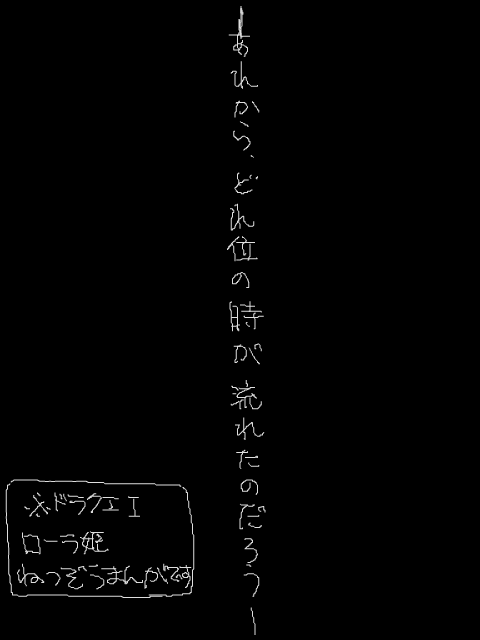 ―あれから、どれ位の時が流れたのだろう―
※ドラクエI
ローラ姫
ねつぞうまんがです